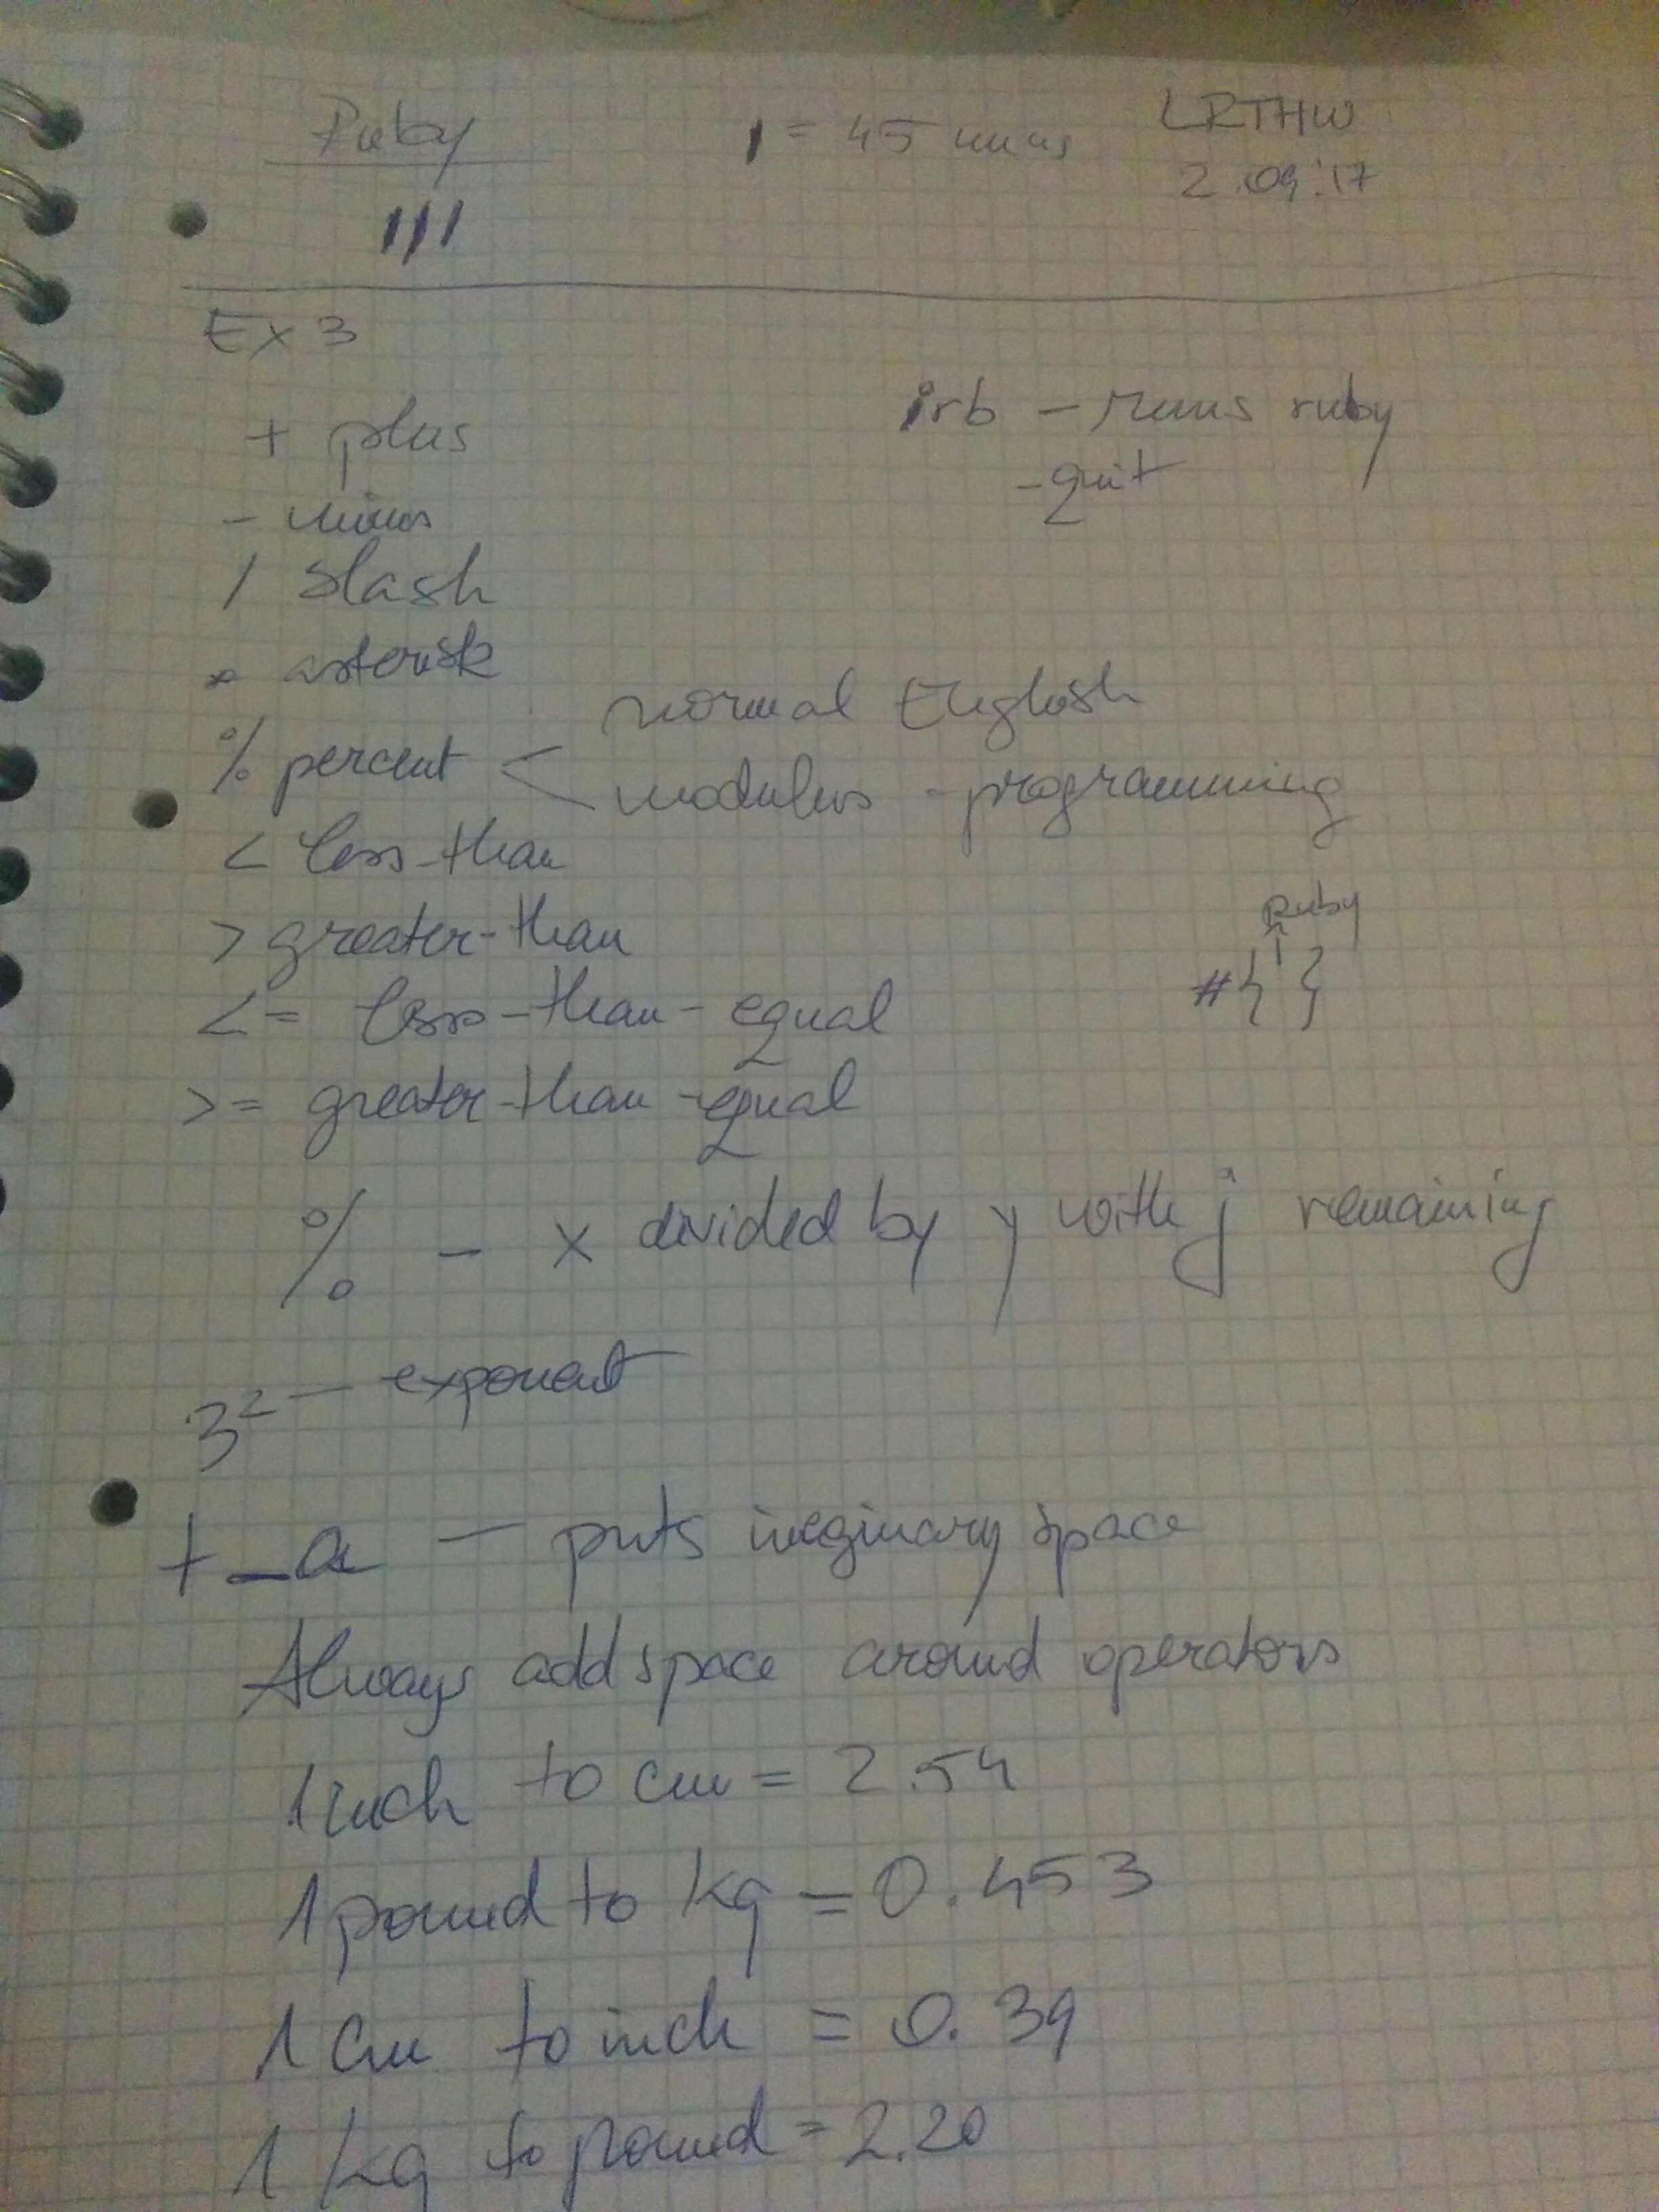 Ruby
I = 45 mins
LRTHW
2.09.'17
III
Ex 3
irb - runs ruby
- quit
+ plus
- minus
/ slash
* asterisk
% percent < normal English
modulus - programming
< less-than
> greater-than
Ruby
#{ }
<= less-than-equal
>= greater-than-equal
% - x divided by y with j remaining
3² — exponent
+_a — puts imeginary space
Always add space around operators
1 inch to cm = 2.54
1 pound to kg = 0.453
1 cm to inch = 0.39
1 kg to pound = 2.20